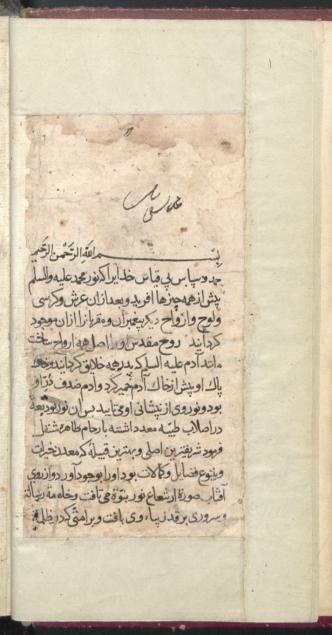 بسم الله الرحمن الرحیم
حمد و سپاس بی قیاس خدایرا که نور محمد علیه والسلم
پیش از همه چیزها افرید و بعد از ان عرش و کرسی
و لوح و ارواح دیکر پیغمبران و مقربانرا از ان موجود
کردانید روح مقدس او را اصل همه ارواح ساخت
مانند ادم علیه السلم که پدر همه خلایق کردانید و
پاک او پیش از خاک آدم خمیر کرد و آدم صدف در او
بود و نور وی از پیشانی او می تابید پس ان نور
در اصلاب طیبه معدد داشته بارحام طاهره منتقل
فرمود شریفترین اصلی و بهترین قبیله که معدن خیرات
و ینبوع فضایل و کمالات بود او را بوجود آورد و از روی
آفتاب صورة او شعاع نور نبوة می تافت و خامه
و سروری بر قد زیبای وی بافت و بر امتی که در ظلمة